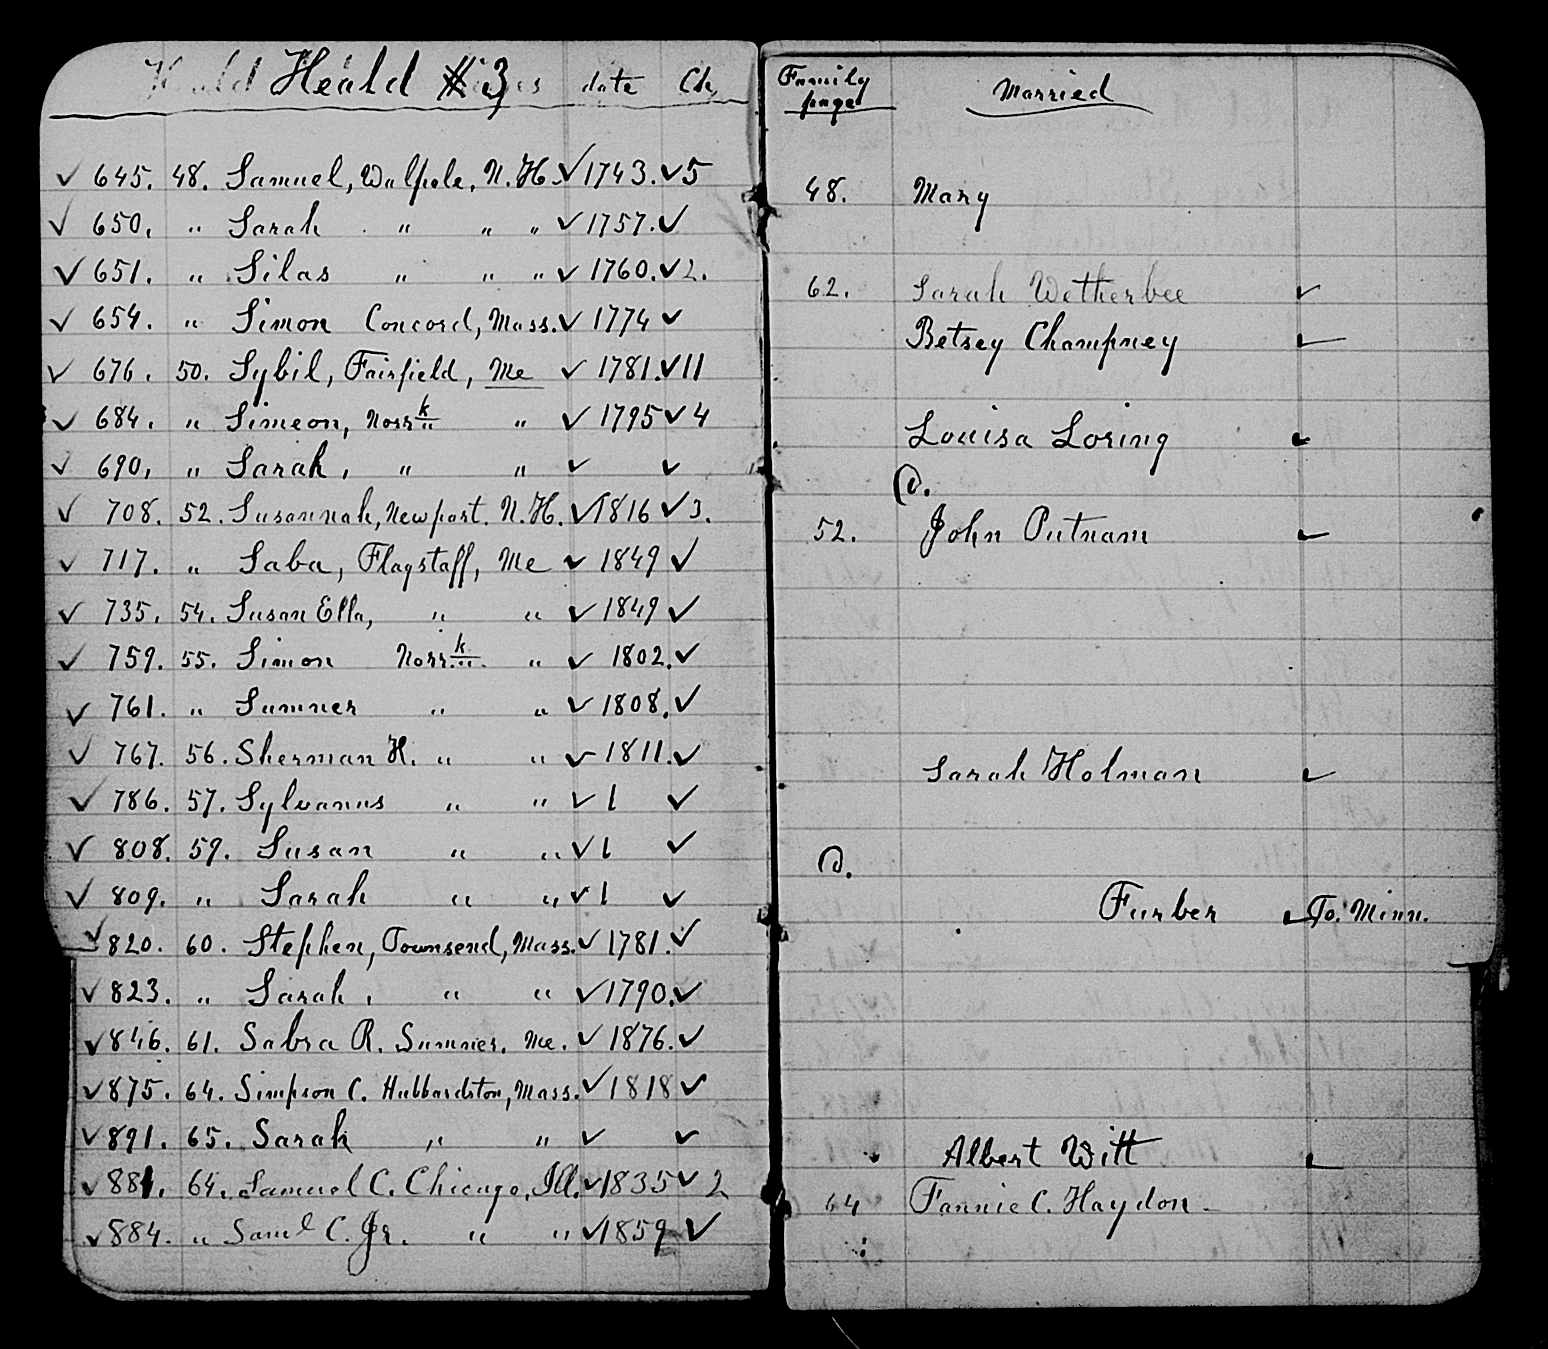 Heald #3 date Ch.
✓ 645. 48. Samuel, Walpole, N.H. ✓ 1743. ✓ 5
✓ 650. " Sarah " " " ✓ 1757. ✓
✓ 651. " Silas " " " ✓ 1760. ✓ 2.
✓ 654. " Simon Concord, Mass. ✓ 1774 ✓
✓ 676. 50. Sybil, Fairfield, Me ✓ 1781. ✓ 11
✓ 684. " Simeon, Norr.k " ✓ 1795 ✓ 4
✓ 690, " Sarah, " " ✓ ✓
✓ 708. 52. Susannah, Newport. N.H. ✓ 1816 ✓ 3.
✓ 717. " Saba, Flagstaff, Me ✓ 1849 ✓
✓ 735. 54. Susan Ella, " " ✓ 1849 ✓
✓ 759. 55. Simon Norr.k " ✓ 1802. ✓
✓ 761. " Sumner " " ✓ 1808. ✓
✓ 767. 56. Sherman H. " " ✓ 1811. ✓
✓ 786. 57. Sylvanus " " ✓ 1 ✓
✓ 808. 59. Susan " " ✓ 1 ✓
✓ 809. " Sarah " " ✓ 1 ✓
✓ 820. 60. Stephen, Townsend, Mass. ✓ 1781. ✓
✓ 823. " Sarah, " " ✓ 1790. ✓
✓ 846. 61. Sabra R. Sumner. Me. ✓ 1876. ✓
✓ 875. 64. Simpson C. Hubbardston, Mass. ✓ 1818 ✓
✓ 891. 65. Sarah " " ✓ ✓
✓ 881. 64. Samuel C. Chicago, Ill. ✓ 1835 ✓ 2
✓ 884. " Saml C. Jr. " " ✓ 1859 ✓
Family page Married
48. Mary
62. Sarah Wetherbee ✓
Betsey Champney ✓
Louisa Loring ✓
52. John Putnam ✓
Sarah Holman ✓
Furber ✓ To. Minn.
Albert Witt ✓
64 Fannie C. Haydon.